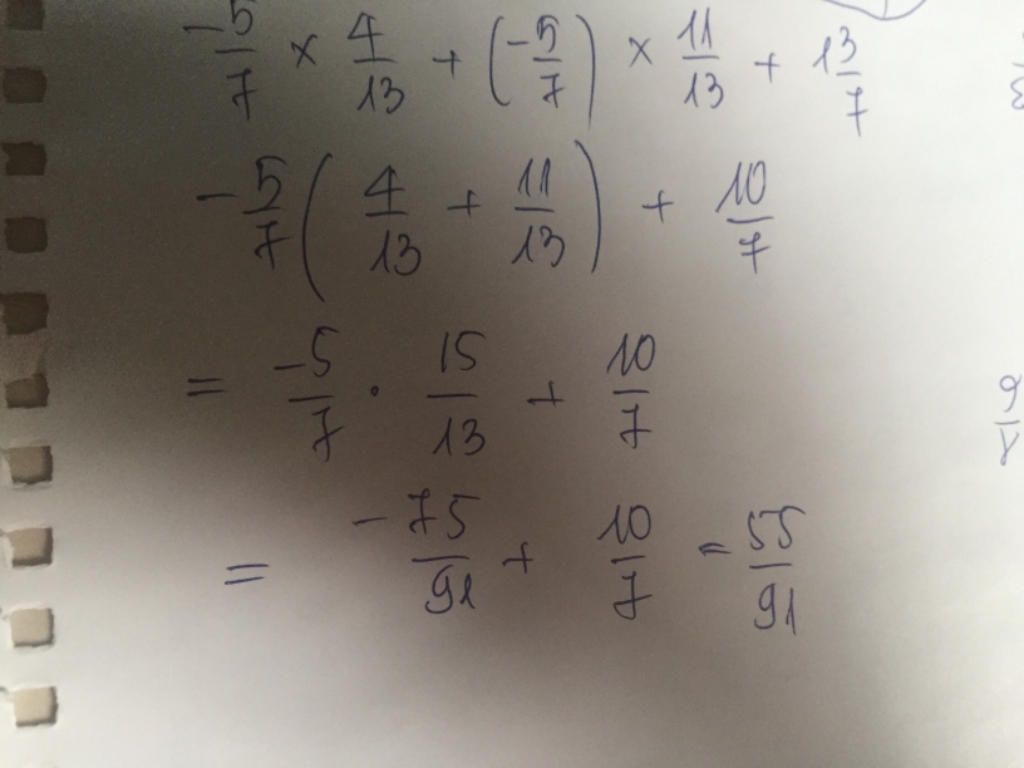 -5/7 × 4/13 + (-5/7) × 11/13 + 1 3/7
-5/7 (4/13 + 11/13) + 10/7
= -5/7 · 15/13 + 10/7
= -75/91 + 10/7 = 55/91